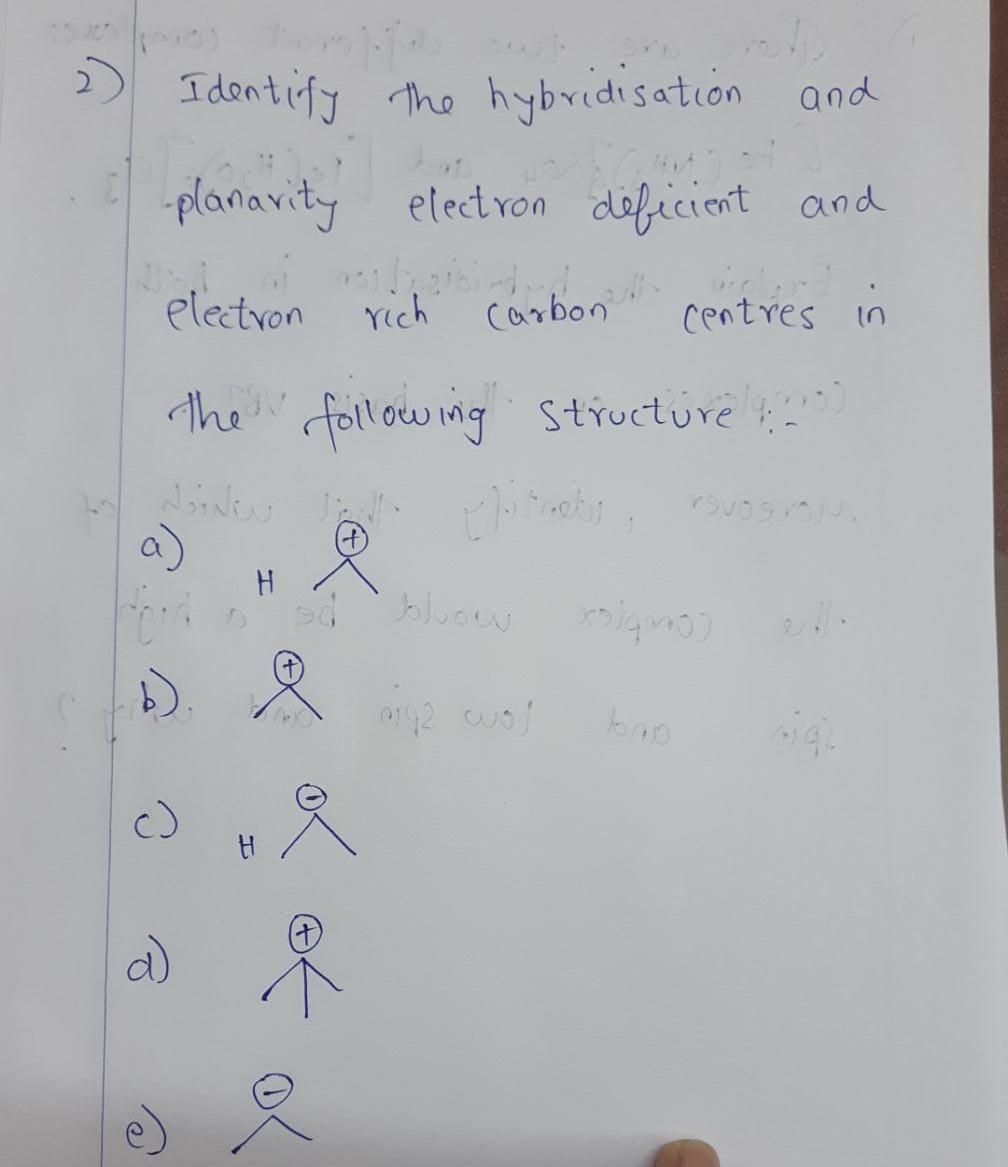 2) Identify the hybridisation and
planarity electron deficient and
electron rich carbon centres in
the following structure :-
a) H ⊕
b) ⊕
c) H ⊖
d) ⊕
e) ⊖